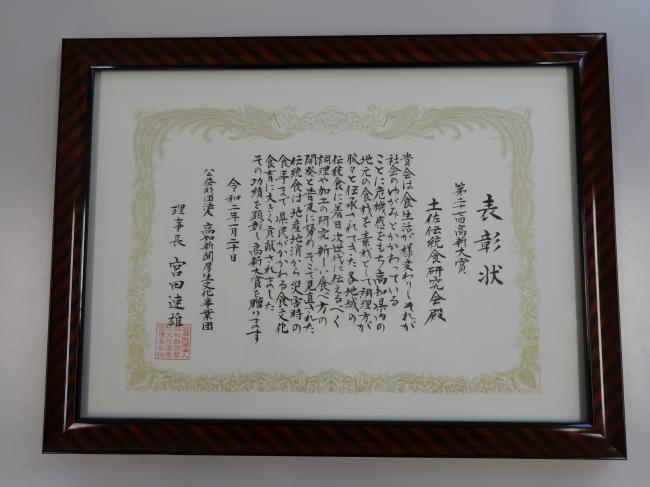 表彰状
第二七回高新大賞
土佐伝統食研究会殿
貴会は食生活が様変わりしそれが
社会のゆがみとかかわっている
ことに危機感をもち高知県内の
地元の食材を素材とし調理方が
脈々と伝承されてきた各地域の
伝統食に着目次世代に伝えるべく
調理や加工の研究新しい食べ方の
開発と普及に努めそこで見直された
伝統食は地産地消から災害時の
食事まで県民がかかわる食文化
食育に大きく貢献されました
その功績を顕彰し高新大賞を贈ります
令和二年一月二十日
公益財団法人高知新聞厚生文化事業団
理事長 宮田速雄